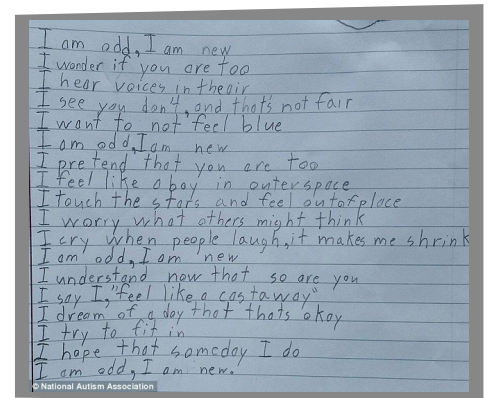 I am odd, I am new
I wonder if you are too
I hear voices in the air
I see you don't, and that's not fair
I want to not feel blue
I am odd, I am new
I pretend that you are too
I feel like a boy in outerspace
I touch the stars and feel out of place
I worry what others might think
I cry when people laugh, it makes me shrink
I am odd, I am new
I understand now that so are you
I say I, "feel like a castaway"
I dream of a day that thats okay
I try to fit in
I hope that someday I do
I am odd, I am new.
© National Autism Association